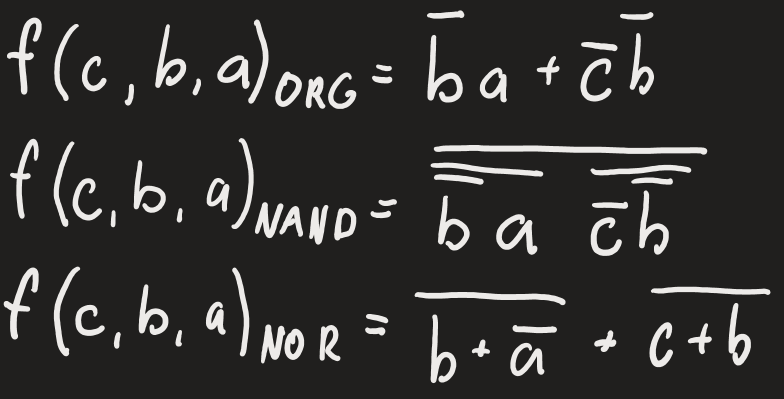 f(c, b, a)ORG = b̅ a + c̅ b̅
f(c, b, a)NAND = \overline{\overline{b̅ a} \overline{c̅ b̅}}
f(c, b, a)NOR = \overline{b + a̅} + \overline{c + b}